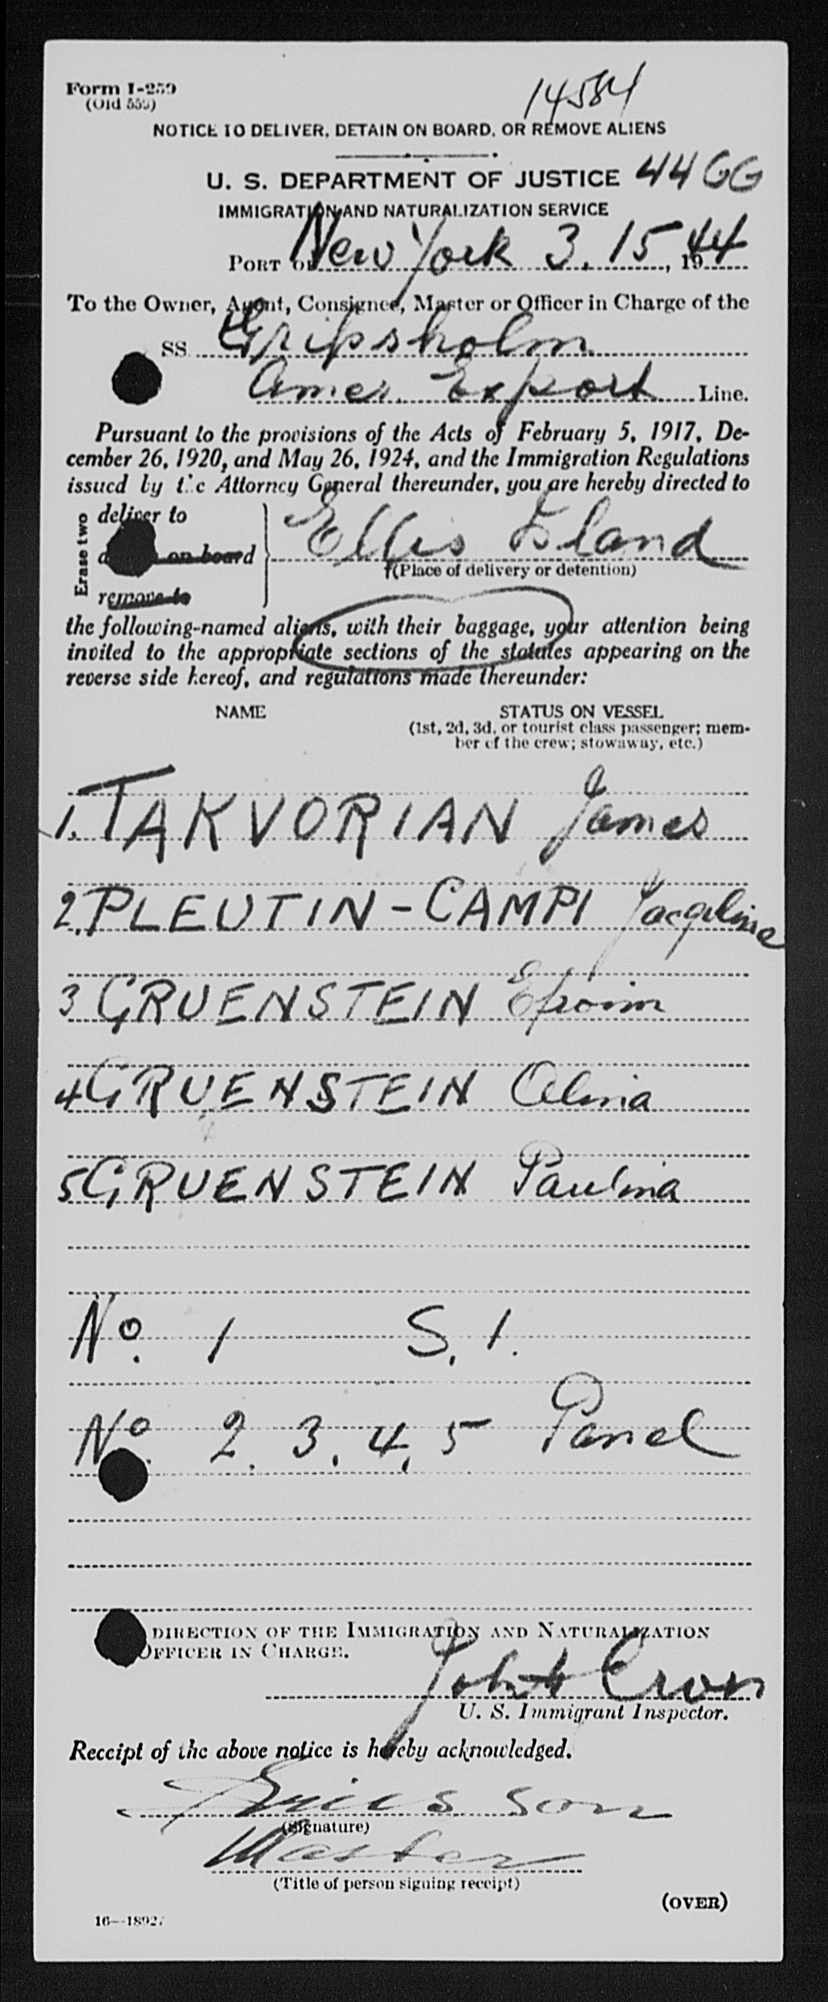 Form I-259
(Old 559)
14584
NOTICE TO DELIVER, DETAIN ON BOARD, OR REMOVE ALIENS
U. S. DEPARTMENT OF JUSTICE 44 GG
IMMIGRATION AND NATURALIZATION SERVICE
PORT OF New York 3. 15, 1944
To the Owner, Agent, Consignee, Master or Officer in Charge of the
SS Gripsholm
Amer. Export Line.
Pursuant to the provisions of the Acts of February 5, 1917, De-
cember 26, 1920, and May 26, 1924, and the Immigration Regulations
issued by the Attorney General thereunder, you are hereby directed to
Erase two
deliver to
on board
remove to
Ellis Island
(Place of delivery or detention)
the following-named aliens, with their baggage, your attention being
invited to the appropriate sections of the statutes appearing on the
reverse side hereof, and regulations made thereunder:
NAME STATUS ON VESSEL
(1st, 2d, 3d, or tourist class passenger; mem-
ber of the crew; stowaway, etc.)
1. TAKVORIAN James
2. PLEUTIN-CAMPI Jacqeline
3 GRUENSTEIN Efroim
4 GRUENSTEIN Alina
5 GRUENSTEIN Paulina
No. 1 S. 1.
No. 2. 3. 4, 5 Panel
DIRECTION OF THE IMMIGRATION AND NATURALIZATION
OFFICER IN CHARGE.
John Cron
U. S. Immigrant Inspector.
Receipt of the above notice is hereby acknowledged.
Ericsson
(Signature)
Master
(Title of person signing receipt)
(OVER)